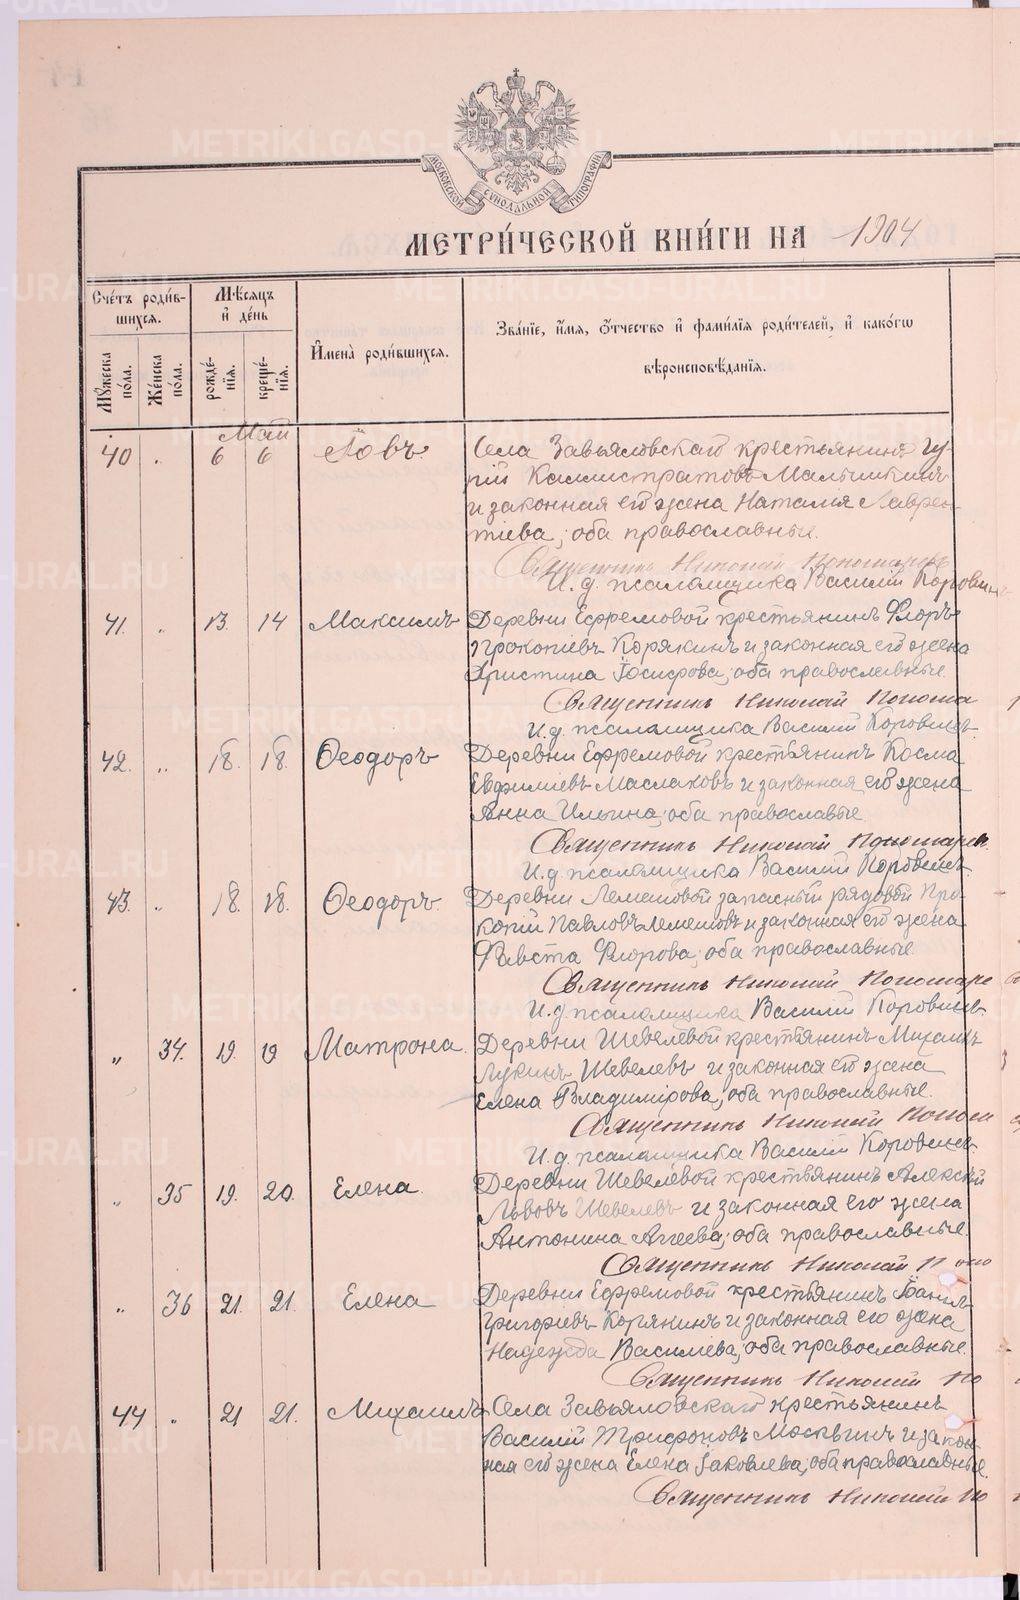 METRIKI.GASO-URAL.RU
МОСКОВСКОЙ СѴНОДАЛЬНОЙ ТИПОГРАФІИ
МЕТРИ́ЧЕСКОЙ КНИ́ГИ НА 1904
Сче́тъ роди́в-
шихся.
Мѣ́сяцъ
и҆ де́нь
И҆мена̀ роди́вшихся.
Зва́ніе, и҆́мя, ѻ҆́тчество и҆ фами́лїя роди́телей, и҆ како́гѡ
вѣроисповѣ́данїя.
Мꙋ́жеска
по́ла.
Же́нска
по́ла.
рожде́-
нїя.
креще́-
нїя.
Май
40 „ 6 6 Іовъ. Села Завьяловскаго крестьянинъ Гу-
рій Каллистратовъ Малышкинъ
и законная его жена Наталія Лаврен-
тіева, оба православные.
Священникъ Николай Пономаревъ
И. д. псаломщика Василій Коровинъ
41. „ 13. 14 Максимъ Деревни Ефремовой крестьянинъ Флоръ
Прокопіевъ Корякинъ и законная его жена
Христина Іосифова, оба православные.
Священникъ Николай Понома
И. д. псаломщика Василій Коровинъ
42. „ 18. 18. Ѳеодоръ Деревни Ефремовой крестьянинъ Косма
Евфиміевъ Маслаковъ и законная его жена
Анна Ильина, оба православые
Священникъ Николай Пономарев
И. д. псаломщика Василій Коровинъ
43. „ 18. 18. Ѳеодоръ. Деревни Лемешовой запасный рядовой Про-
копій Павловъ Лемешовъ и законная его жена
Фавста Флорова, оба православные.
Священникъ Николай Пономаре
И. д. псаломщика Василій Коровинъ
„ 34. 19. 19 Матрона. Деревни Шевелёвой крестьянинъ Михаилъ
Лукинъ Шевелевъ и законная его жена
Елена Владимірова, оба православные.
Священникъ Николай Поном
И. д. псаломщика Василій Коровинъ
„ 35 19. 20. Елена. Деревни Шевелёвой крестьянинъ Алексѣй
Львовъ Шевелевъ и законная его жена
Антонина Аггеева, оба православные.
Священникъ Николай Поно
„ 36 21. 21. Елена Деревни Ефремовой крестьянинъ
Григоріевъ Корякинъ и законная его жена
Надежда Василіева, оба православные.
Священникъ Николай По
44 „ 21 21. Михаилъ Села Завьяловскаго крестьянинъ
Василій Трифоновъ Москвинъ и закон-
ная его жена Елена Іаковлева, оба православные.
Священникъ Николай По